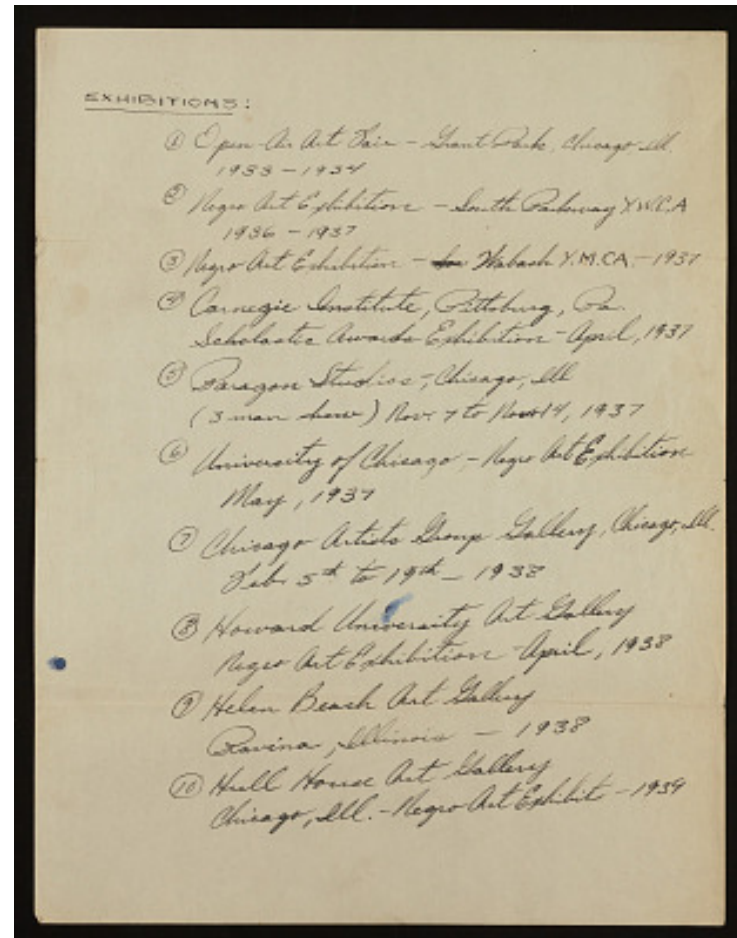 EXHIBITIONS:
① Open-Air Art Fair – Grant Park, Chicago, Ill.
1933 – 1934
② Negro Art Exhibition – South Parkway Y.W.C.A
1936 – 1937
③ Negro Art Exhibition – Wabash Y.M.CA. – 1937
④ Carnegie Institute, Pittsburg, Pa.
Scholastic Awards Exhibition – April, 1937
⑤ Paragon Studios, Chicago, Ill
(3 man show) Nov. 7 to Nov 14, 1937
⑥ University of Chicago – Negro Art Exhibition
May, 1937
⑦ Chicago Artists Group Gallery, Chicago, Ill.
Feb. 5th to 19th – 1938
⑧ Howard University Art Gallery
Negro Art Exhibition – April, 1938
⑨ Helen Beach Art Gallery
Ravina, Illinois – 1938
⑩ Hull House Art Gallery
Chicago, Ill. – Negro Art Exhibit – 1939